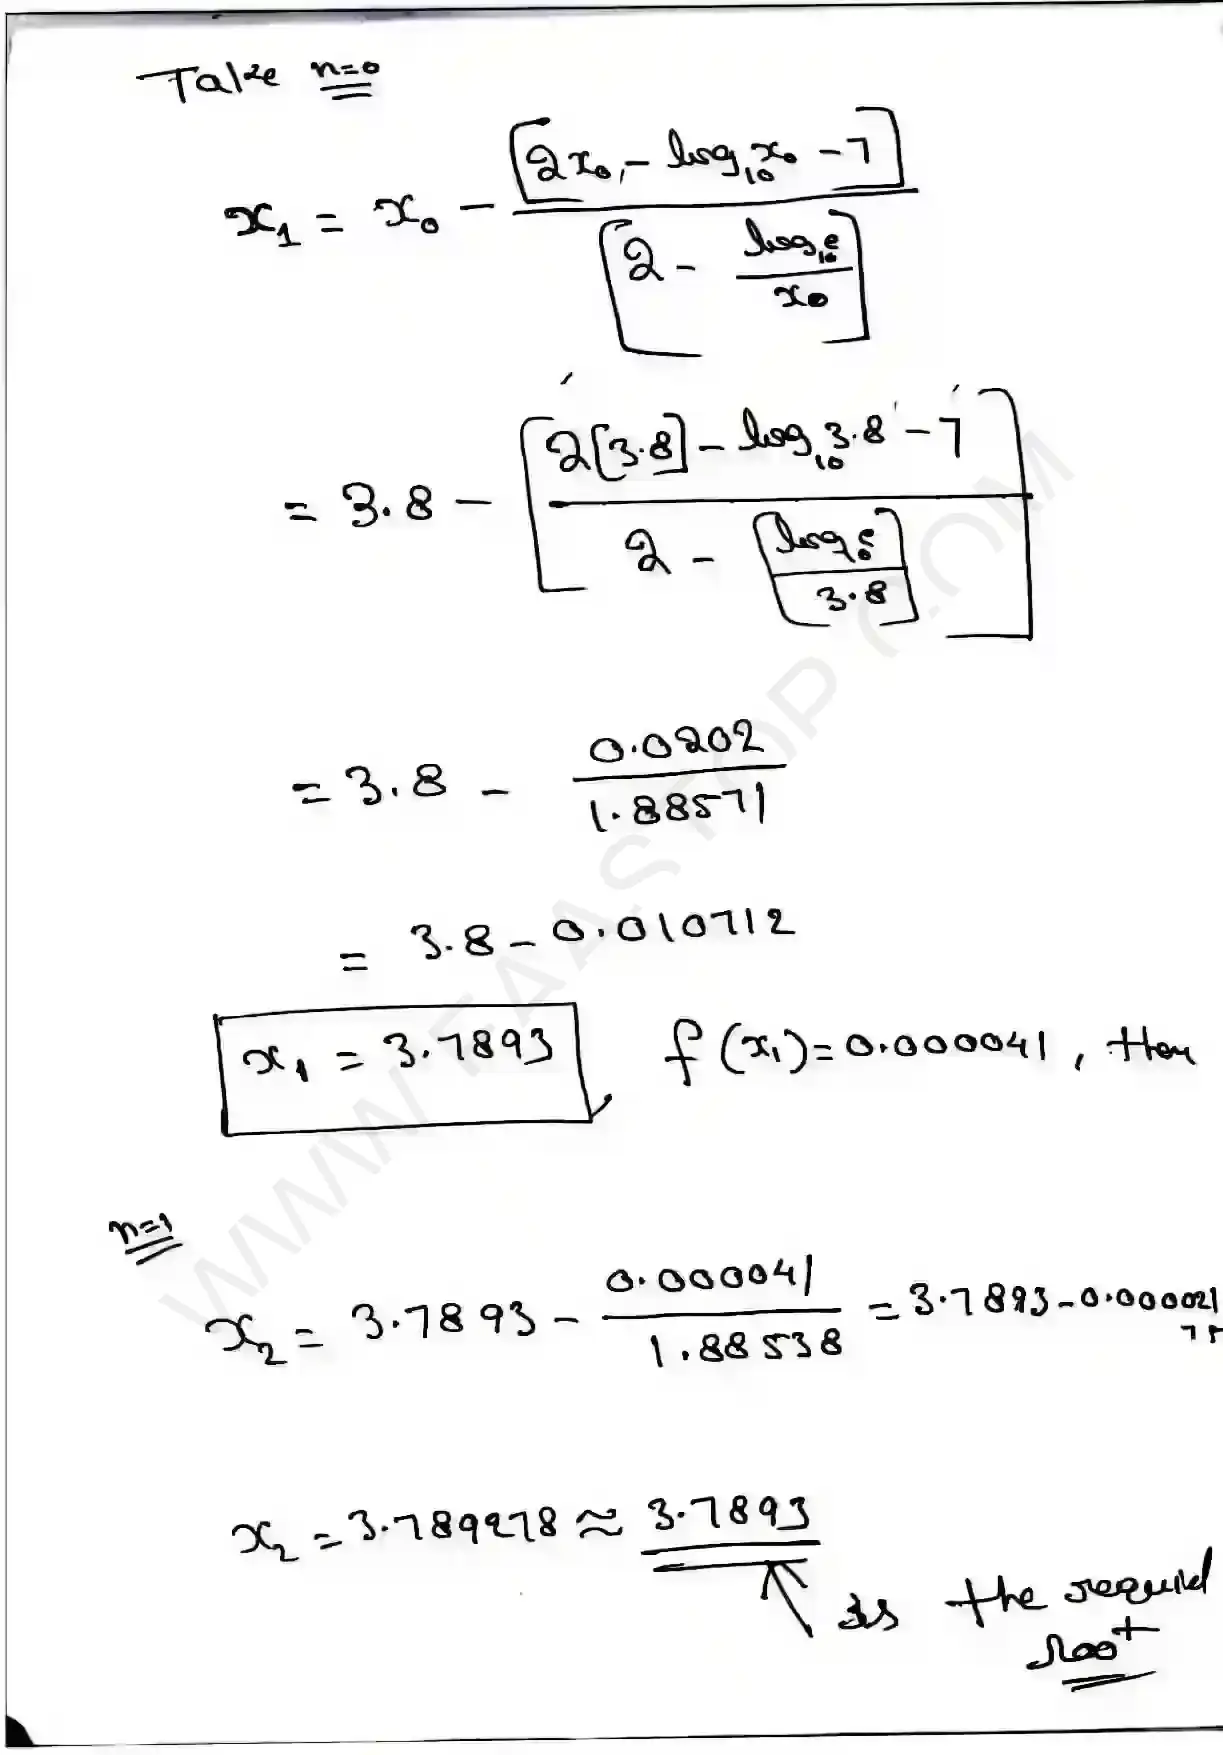 Take n=0
x₁ = x₀ - [2x₀ - log₁₀x₀ - 7] / [2 - log₁₀e / x₀]
= 3.8 - [2[3.8] - log₁₀3.8 - 7 / 2 - [log₁₀e / 3.8]]
= 3.8 - 0.0202 / 1.88571
= 3.8 - 0.010712
x₁ = 3.7893, f(x₁) = 0.000041, then
n=1
x₂ = 3.7893 - 0.000041 / 1.88538 = 3.7893 - 0.000021
x₂ = 3.789278 ≈ 3.7893
is the required
root
WWW.FAASTOP.COM